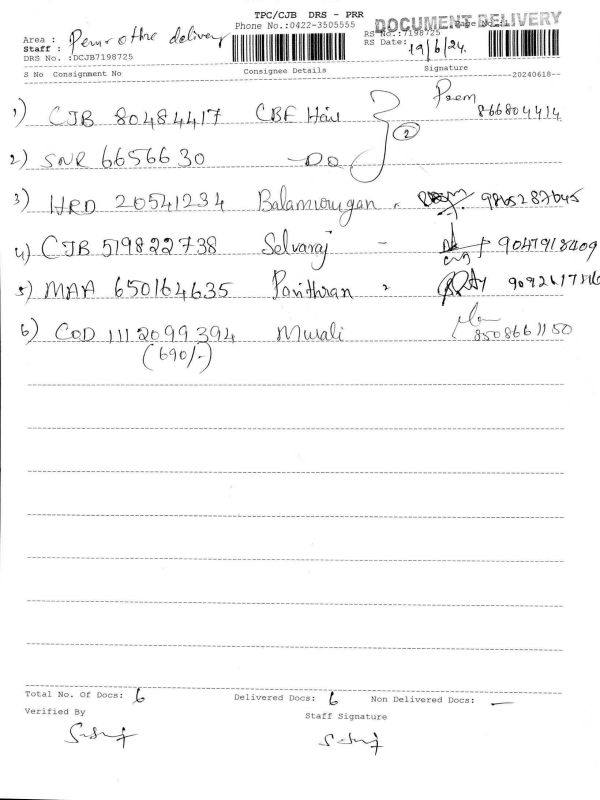 TPC/CJB DRS - PRR
DOCUMENT DELIVERY
Phone No.:0422-3505555
RS No.:7198725
Area :
delivery
RS Date: 19/6/24.
Staff :
DRS No. :DCJB7198725
S No Consignment No Consignee Details Signature
--20240618--
1) CJB 80484417 CBF Hair Prem
866804414
2) SNR 6656630 — DO (2)
3) HRD 20541234 Balamurugan 9865287645
4) CJB 519822738 Selvaraj - 9047918409
5) MAA 650164635 Pavithran
6) COD 1112099394 Murali 8508661150
(690/-)
Total No. Of Docs: 6 Delivered Docs: 6 Non Delivered Docs: —
Verified By Staff Signature